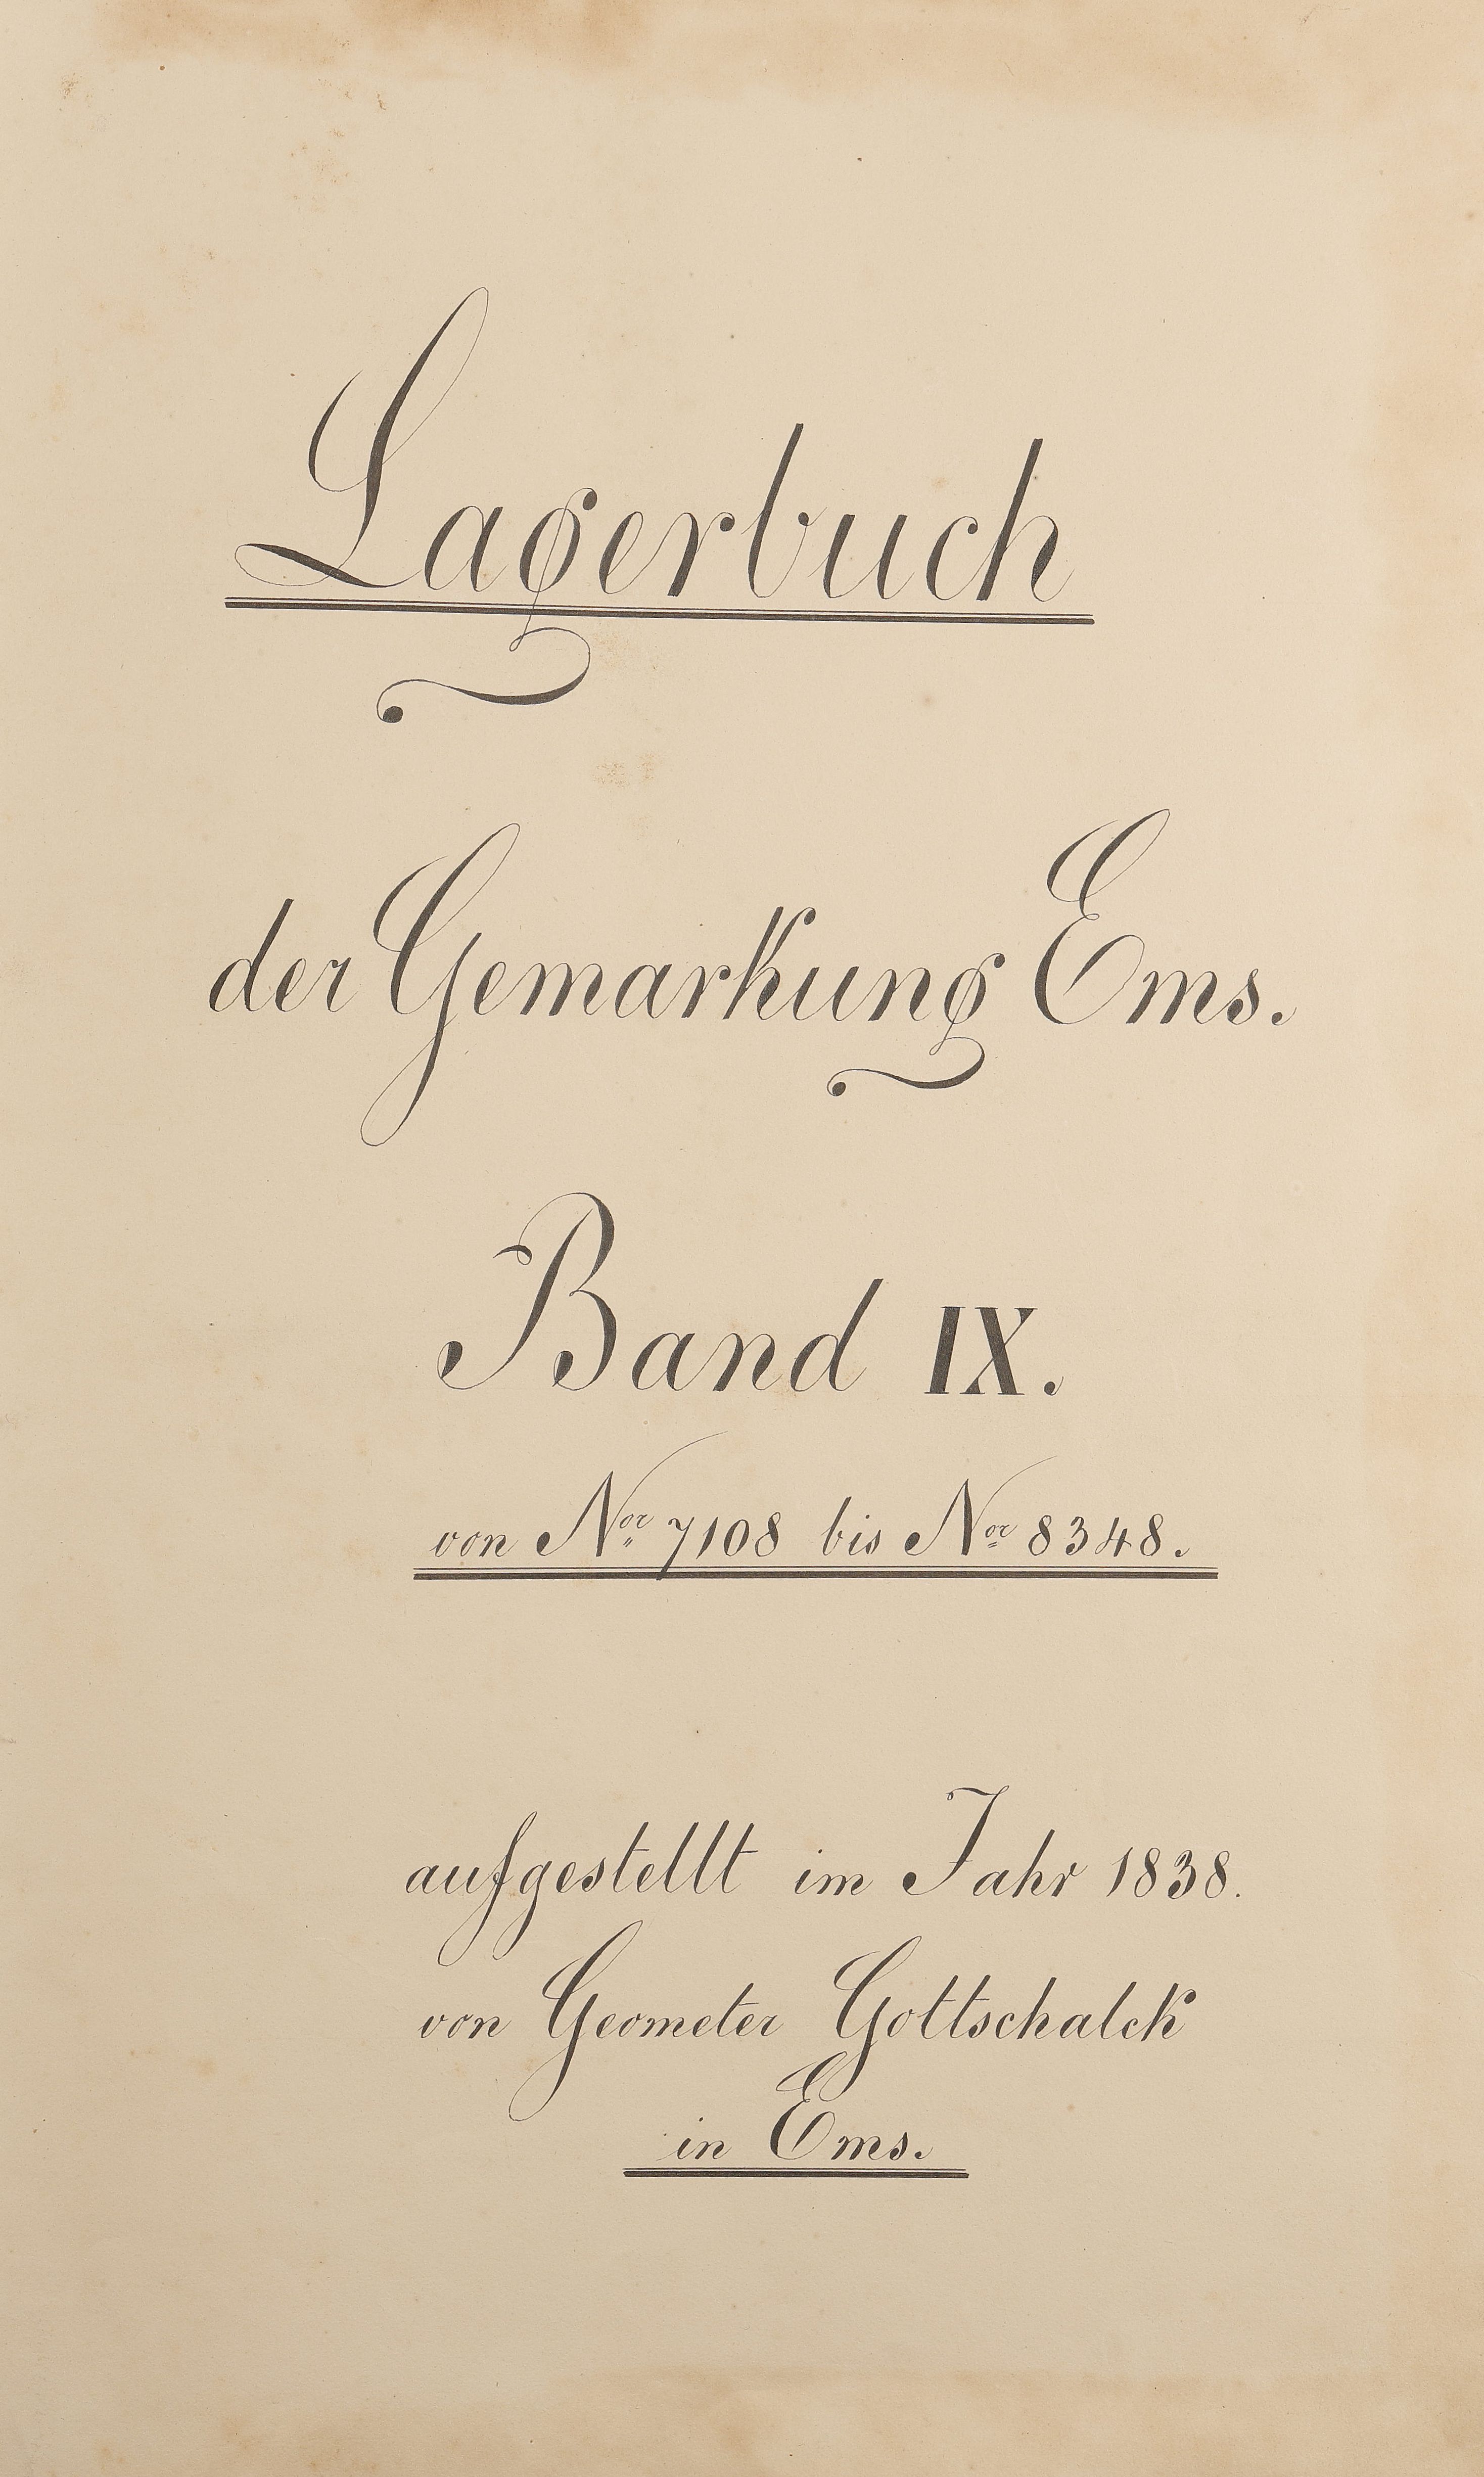 Lagerbuch
der Gemarkung Ems.
Band IX.
von Nor 7108 bis Nor 8348.
aufgestellt im Jahr 1838.
von Geometer Gottschalck
in Ems.